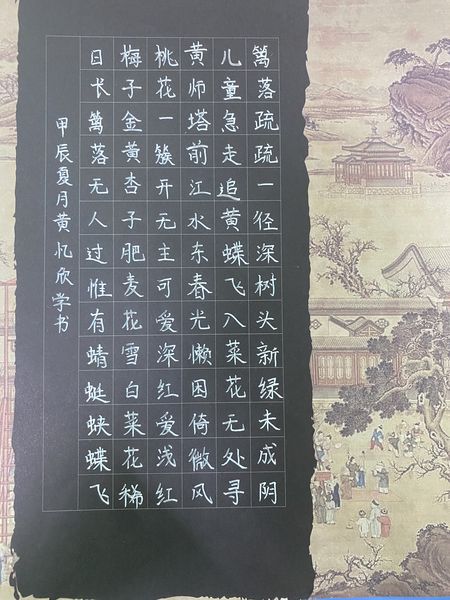 篱落疏疏一径深树头新绿未成阴
儿童急走追黄蝶飞入菜花无处寻
黄师塔前江水东春光懒困倚微风
桃花一簇开无主可爱深红爱浅红
梅子金黄杏子肥麦花雪白菜花稀
日长篱落无人过惟有蜻蜓蛱蝶飞
甲辰夏月黄忆欣学书